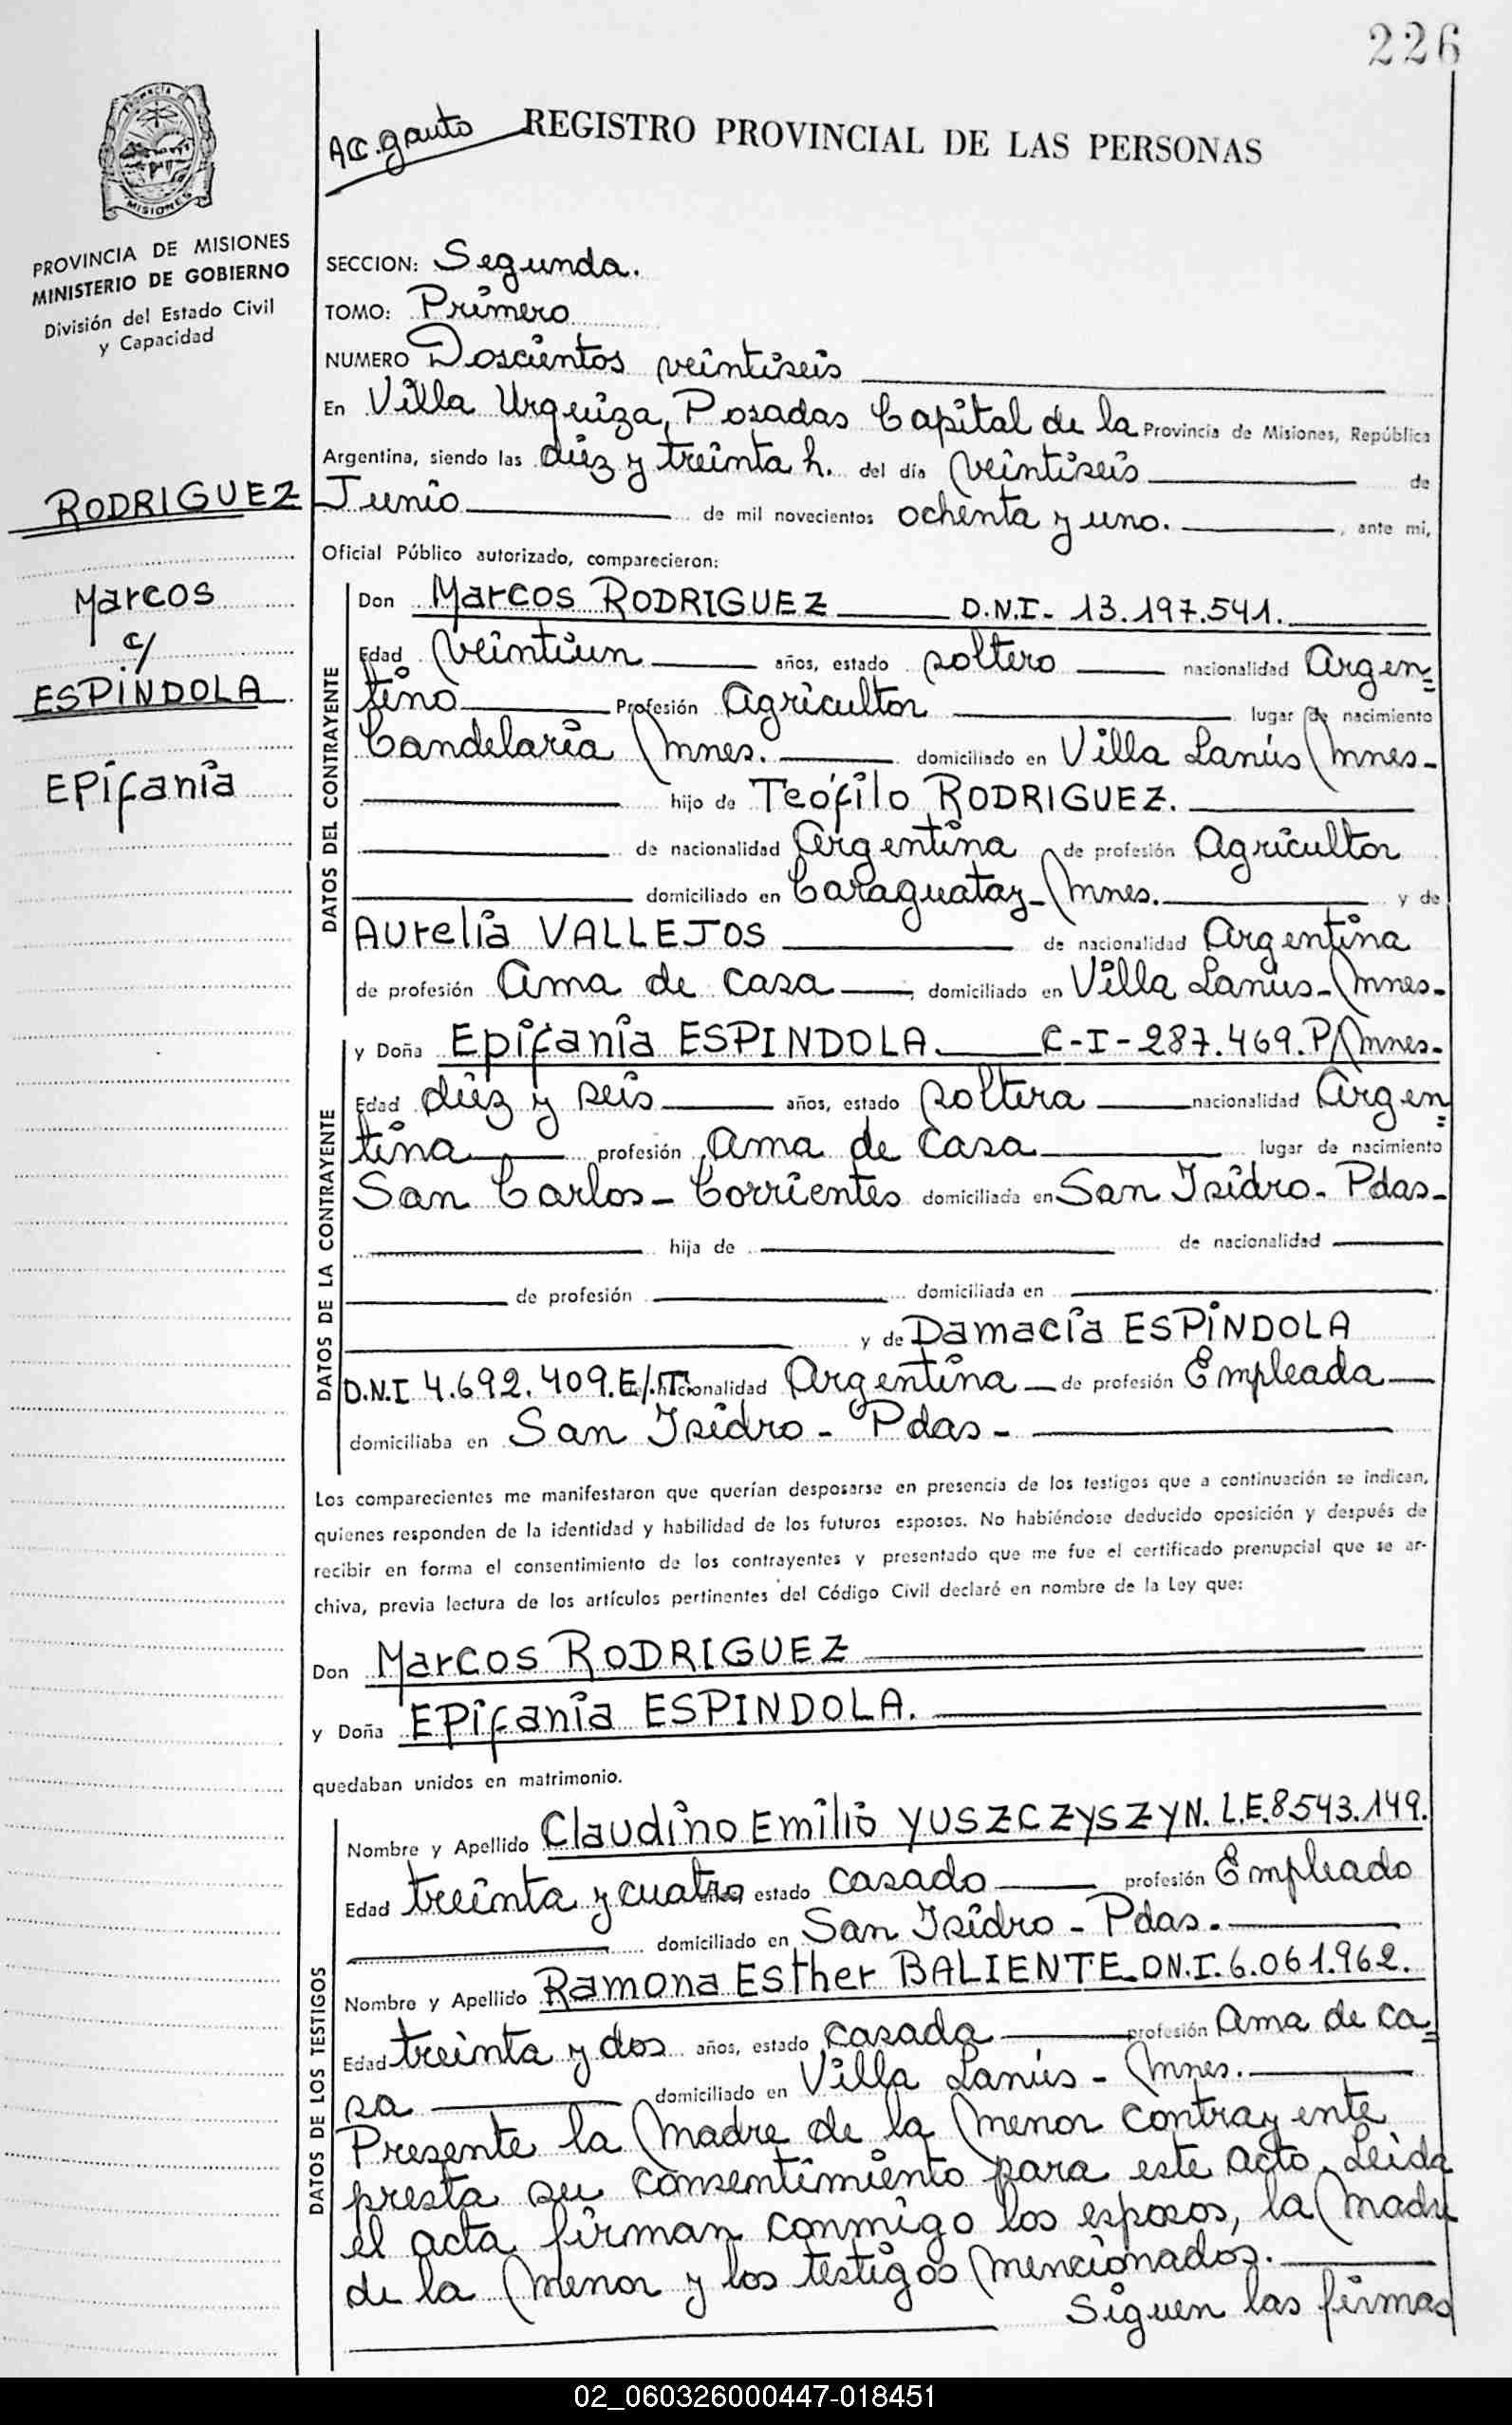 226
Acc. gauto
REGISTRO PROVINCIAL DE LAS PERSONAS
PROVINCIA MISIONES
PROVINCIA DE MISIONES
MINISTERIO DE GOBIERNO
División del Estado Civil
y Capacidad
SECCION: Segunda.
TOMO: Primero
NUMERO Doscientos veintiseis
En Villa Urquiza, Posadas Capital de la Provincia de Misiones, República
Argentina, siendo las diez y treinta h. del día veintiseis de
Junio de mil novecientos ochenta y uno. , ante mi,
Oficial Público autorizado, comparecieron:
RODRIGUEZ
Marcos
c/
ESPINDOLA
Epifania
DATOS DEL CONTRAYENTE
Don Marcos RODRIGUEZ D.N.I- 13.197.541.
Edad veintiun años, estado soltero nacionalidad Argen=
tino Profesión Agricultor lugar de nacimiento
Candelaria Mnes. domiciliado en Villa Lanús Mnes-
hijo de Teófilo RODRIGUEZ.
de nacionalidad Argentina de profesión Agricultor
domiciliado en Caraguatay-Mnes. y de
Aurelia VALLEJOS de nacionalidad Argentina
de profesión Ama de casa , domiciliado en Villa Lanús-Mnes-
DATOS DE LA CONTRAYENTE
y Doña Epifania ESPINDOLA. C-I-287.469.P/Mnes-
Edad diez y seis años, estado soltera nacionalidad Argen=
tina profesión Ama de casa lugar de nacimiento
San Carlos- Corrientes domiciliada en San Isidro- Pdas-
hija de de nacionalidad
de profesión domiciliada en
y de Damacia ESPINDOLA
D.N.I 4.692.409.E/.T. de nacionalidad Argentina de profesión Empleada
domiciliaba en San Isidro - Pdas -
Los comparecientes me manifestaron que querían desposarse en presencia de los testigos que a continuación se indican,
quienes responden de la identidad y habilidad de los futuros esposos. No habiéndose deducido oposición y después de
recibir en forma el consentimiento de los contrayentes y presentado que me fue el certificado prenupcial que se ar-
chiva, previa lectura de los artículos pertinentes del Código Civil declaré en nombre de la Ley que:
Don Marcos RODRIGUEZ
y Doña Epifania ESPINDOLA.
quedaban unidos en matrimonio.
DATOS DE LOS TESTIGOS
Nombre y Apellido Claudino Emilio YUSZCZYSZYN. L.E.8543.149.
Edad treinta y cuatro años, estado casado profesión Empleado
domiciliado en San Isidro - Pdas.
Nombre y Apellido Ramona Esther BALIENTE_DN.I.6.061.962.
Edad treinta y dos años, estado casada profesión Ama de ca=
sa domiciliado en Villa Lanús - Mnes.
Presente la Madre de la Menor contrayente
presta su consentimiento para este acto. Leida
el acta firman conmigo los esposos, la Madre
de la Menor y los testigos Mencionados.
Siguen las firmas
02_060326000447-018451